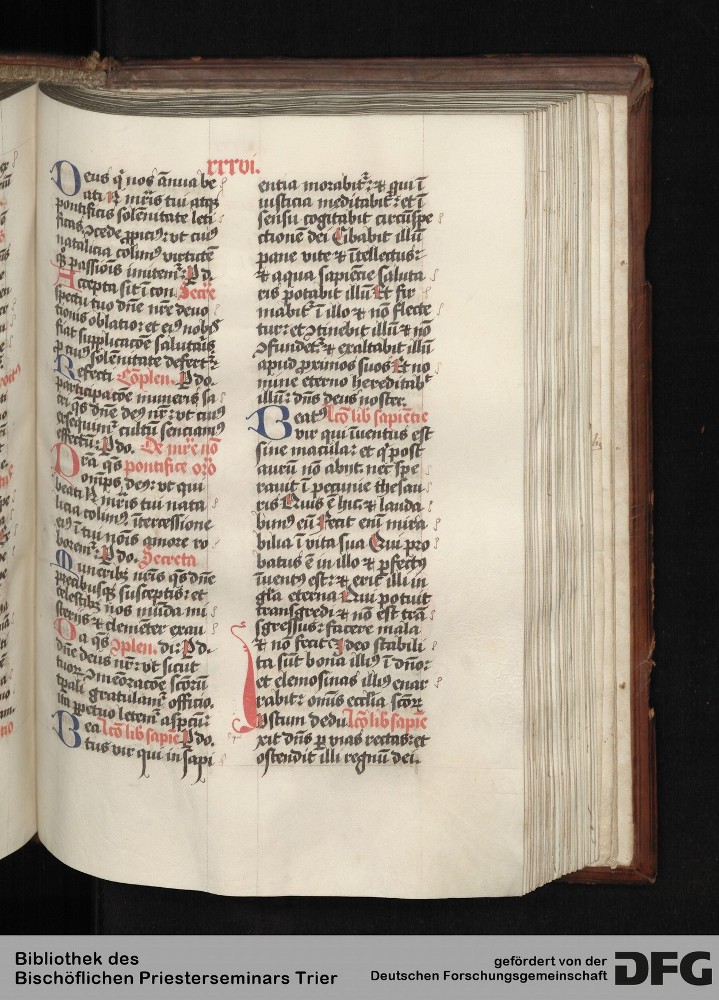 xxxvi.
Deus q̓ nos ānua be
ati N mr̄is tui atqꝫ
pontificis solēnitate leti
ficas ꝯcede ꝓpiciꝰ: vt cuiꝰ
natalicia colimꝰ virtutē
qꝫ passiōis imitemr̄: P d.
Accepta sit ī con Secre
spectu tuo dn̄e nr̄e deuo
tionis oblatio: et eiꝰ nobꝭ
fiat supplicacōe salutaris
ꝓ cuiꝰ solēnitate defertr̄:
Refecti Cōplen. P do.
participatōe muneris sa
cri q̄s dn̄e deꝰ nr̄: vt cuiꝰ
exequimr̄ cultū senciamꝰ
effectū: P do. De mr̄e nō
Da q̄s pontifice orō
om̄ps deꝰ: vt qui
beati N mr̄is tui nata
licia colimꝰ. ītercessione
eiꝰ ī tui nōis amore ro
boremr̄: P do. Secreta
Muneribꝫ nr̄is q̄s dn̄e
precibusqꝫ susceptis: et
celestibꝫ nos mūda mi
sterijs ⁊ clemēter exau
Da q̄s ꝯplen. di: P d.
dn̄e deus nr̄: vt sicut
tuoꝝ ꝯmēoracōe sc̄orū
tꝑali gratulamr̄ officio.
ita ꝑpetuo letemr̄ aspcū:
Bea lc̄o lib sapiē P do.
tus vir qui in sapi
entia morabitr̄: ⁊ qui ī
iusticia meditabitr̄: et ī
sensu cogitabit circūspe
ctionē dei Cibabit illū
pane vite ⁊ ītellectus:
⁊ aqua sapiētie saluta
ris potabit illū Et fir
mabitr̄ ī illo ⁊ nō flecte
tur: et ꝯtinebit illū ⁊ nō
ꝯfundetr̄: ⁊ exaltabit illū
apud ꝓximos suos Et no
mine eterno hereditabᵗ
illū: dn̄s deus noster.
Beatꝰ lc̄o lib sapiētie
vir qui īuentus est
sine macula: et q̓ post
aurū nō abijt: nec spe
rauit ī pecunie thesau
ris Quis ē hic: ⁊ lauda
bimꝰ eū Fecit enī mira
bilia ī vita sua Qui pro
batus ē in illo ⁊ ꝑfectꝰ
īuentꝰ est: ⁊ erit illi in
gl̄a eterna Qui potuit
transgredi ⁊ nō est trā
sgressus: facere mala
⁊ nō fecit: Ideo stabili
ta sūt bona illiꝰ ī dn̄o:
et elemosinas illiꝰ enar
rabit: om̄is ecclīa scōꝝ
Iustum dedu lc̄o lib sapiē
xit dn̄s ꝑ vias rectas: et
ostendit illi regnū dei.
Bibliothek des
Bischöflichen Priesterseminars Trier
gefördert von der
Deutschen Forschungsgemeinschaft
DFG